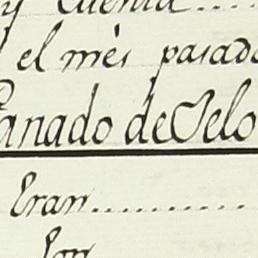 y Cuenta....
el més pasado
Ganado de Pelo
Eran..........
Son